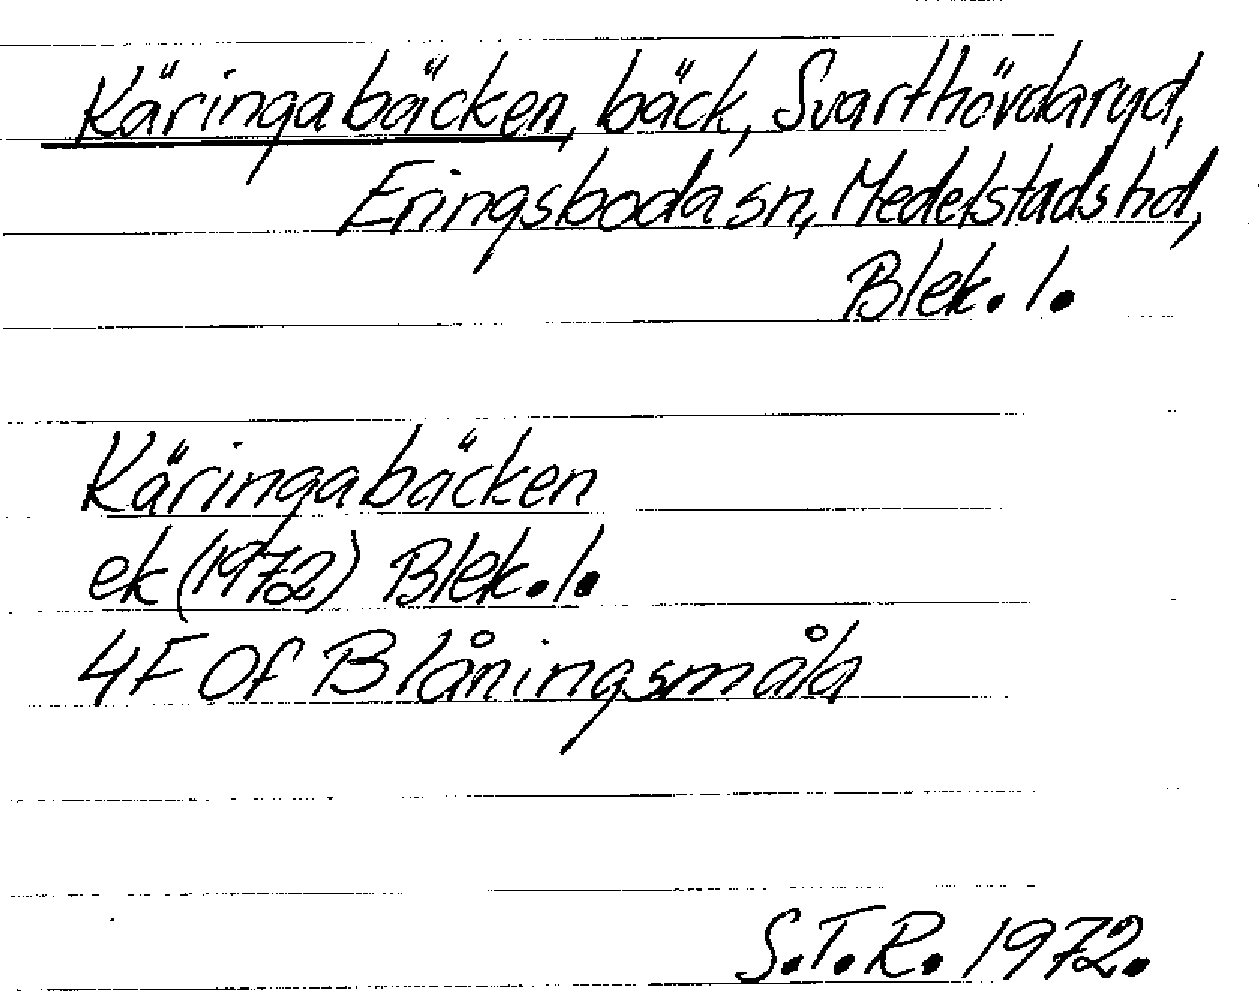 Käringabäcken, bäck, Svarthövdaryd,
Eringsboda sn, Medelstads hd,
Blek. l.
Käringabäcken
ek (1972) Blek. l.
4F 0f Blåningsmåla
S.T.R. 1972.